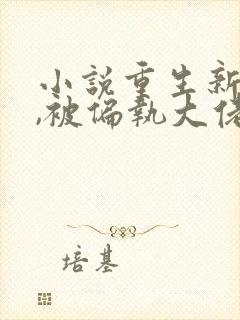 小説重生新
,被偏執大佬
培基